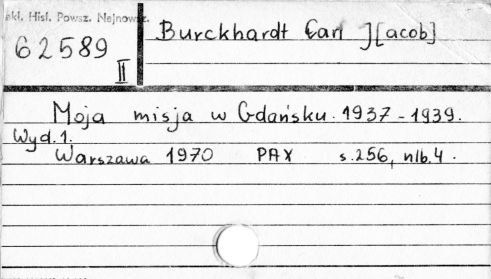 Hist. Powsz. Najnowsz.
62589
II
Burckhardt Carl J[acob]
Moja misja w Gdańsku. 1937-1939.
Wyd. 1.
Warszawa 1970 PAX s. 256, nlb. 4.